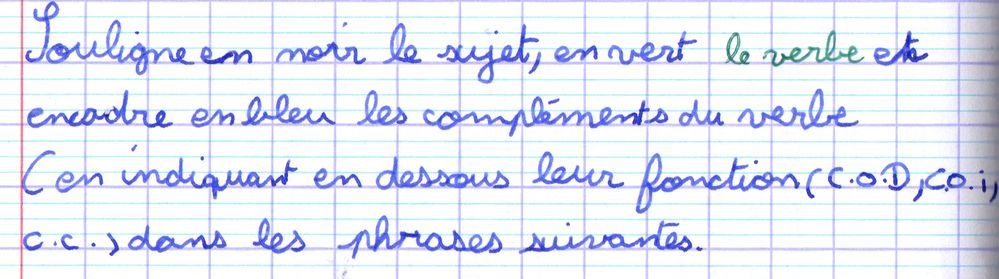 Souligne en noir le sujet, en vert le verbe et
encadre en bleu les compléments du verbe
(en indiquant en dessous leur fonction (C.O.D, C.O.i,
c.c.) dans les phrases suivantes.